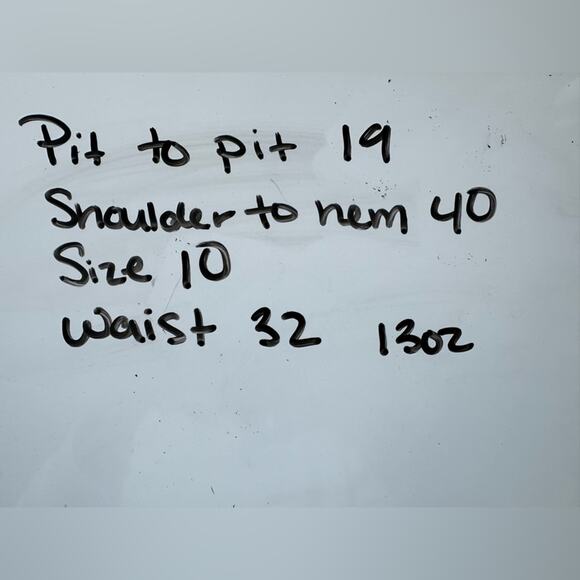 Pit to pit 19
Shoulder to hem 40
Size 10
Waist 32 13oz